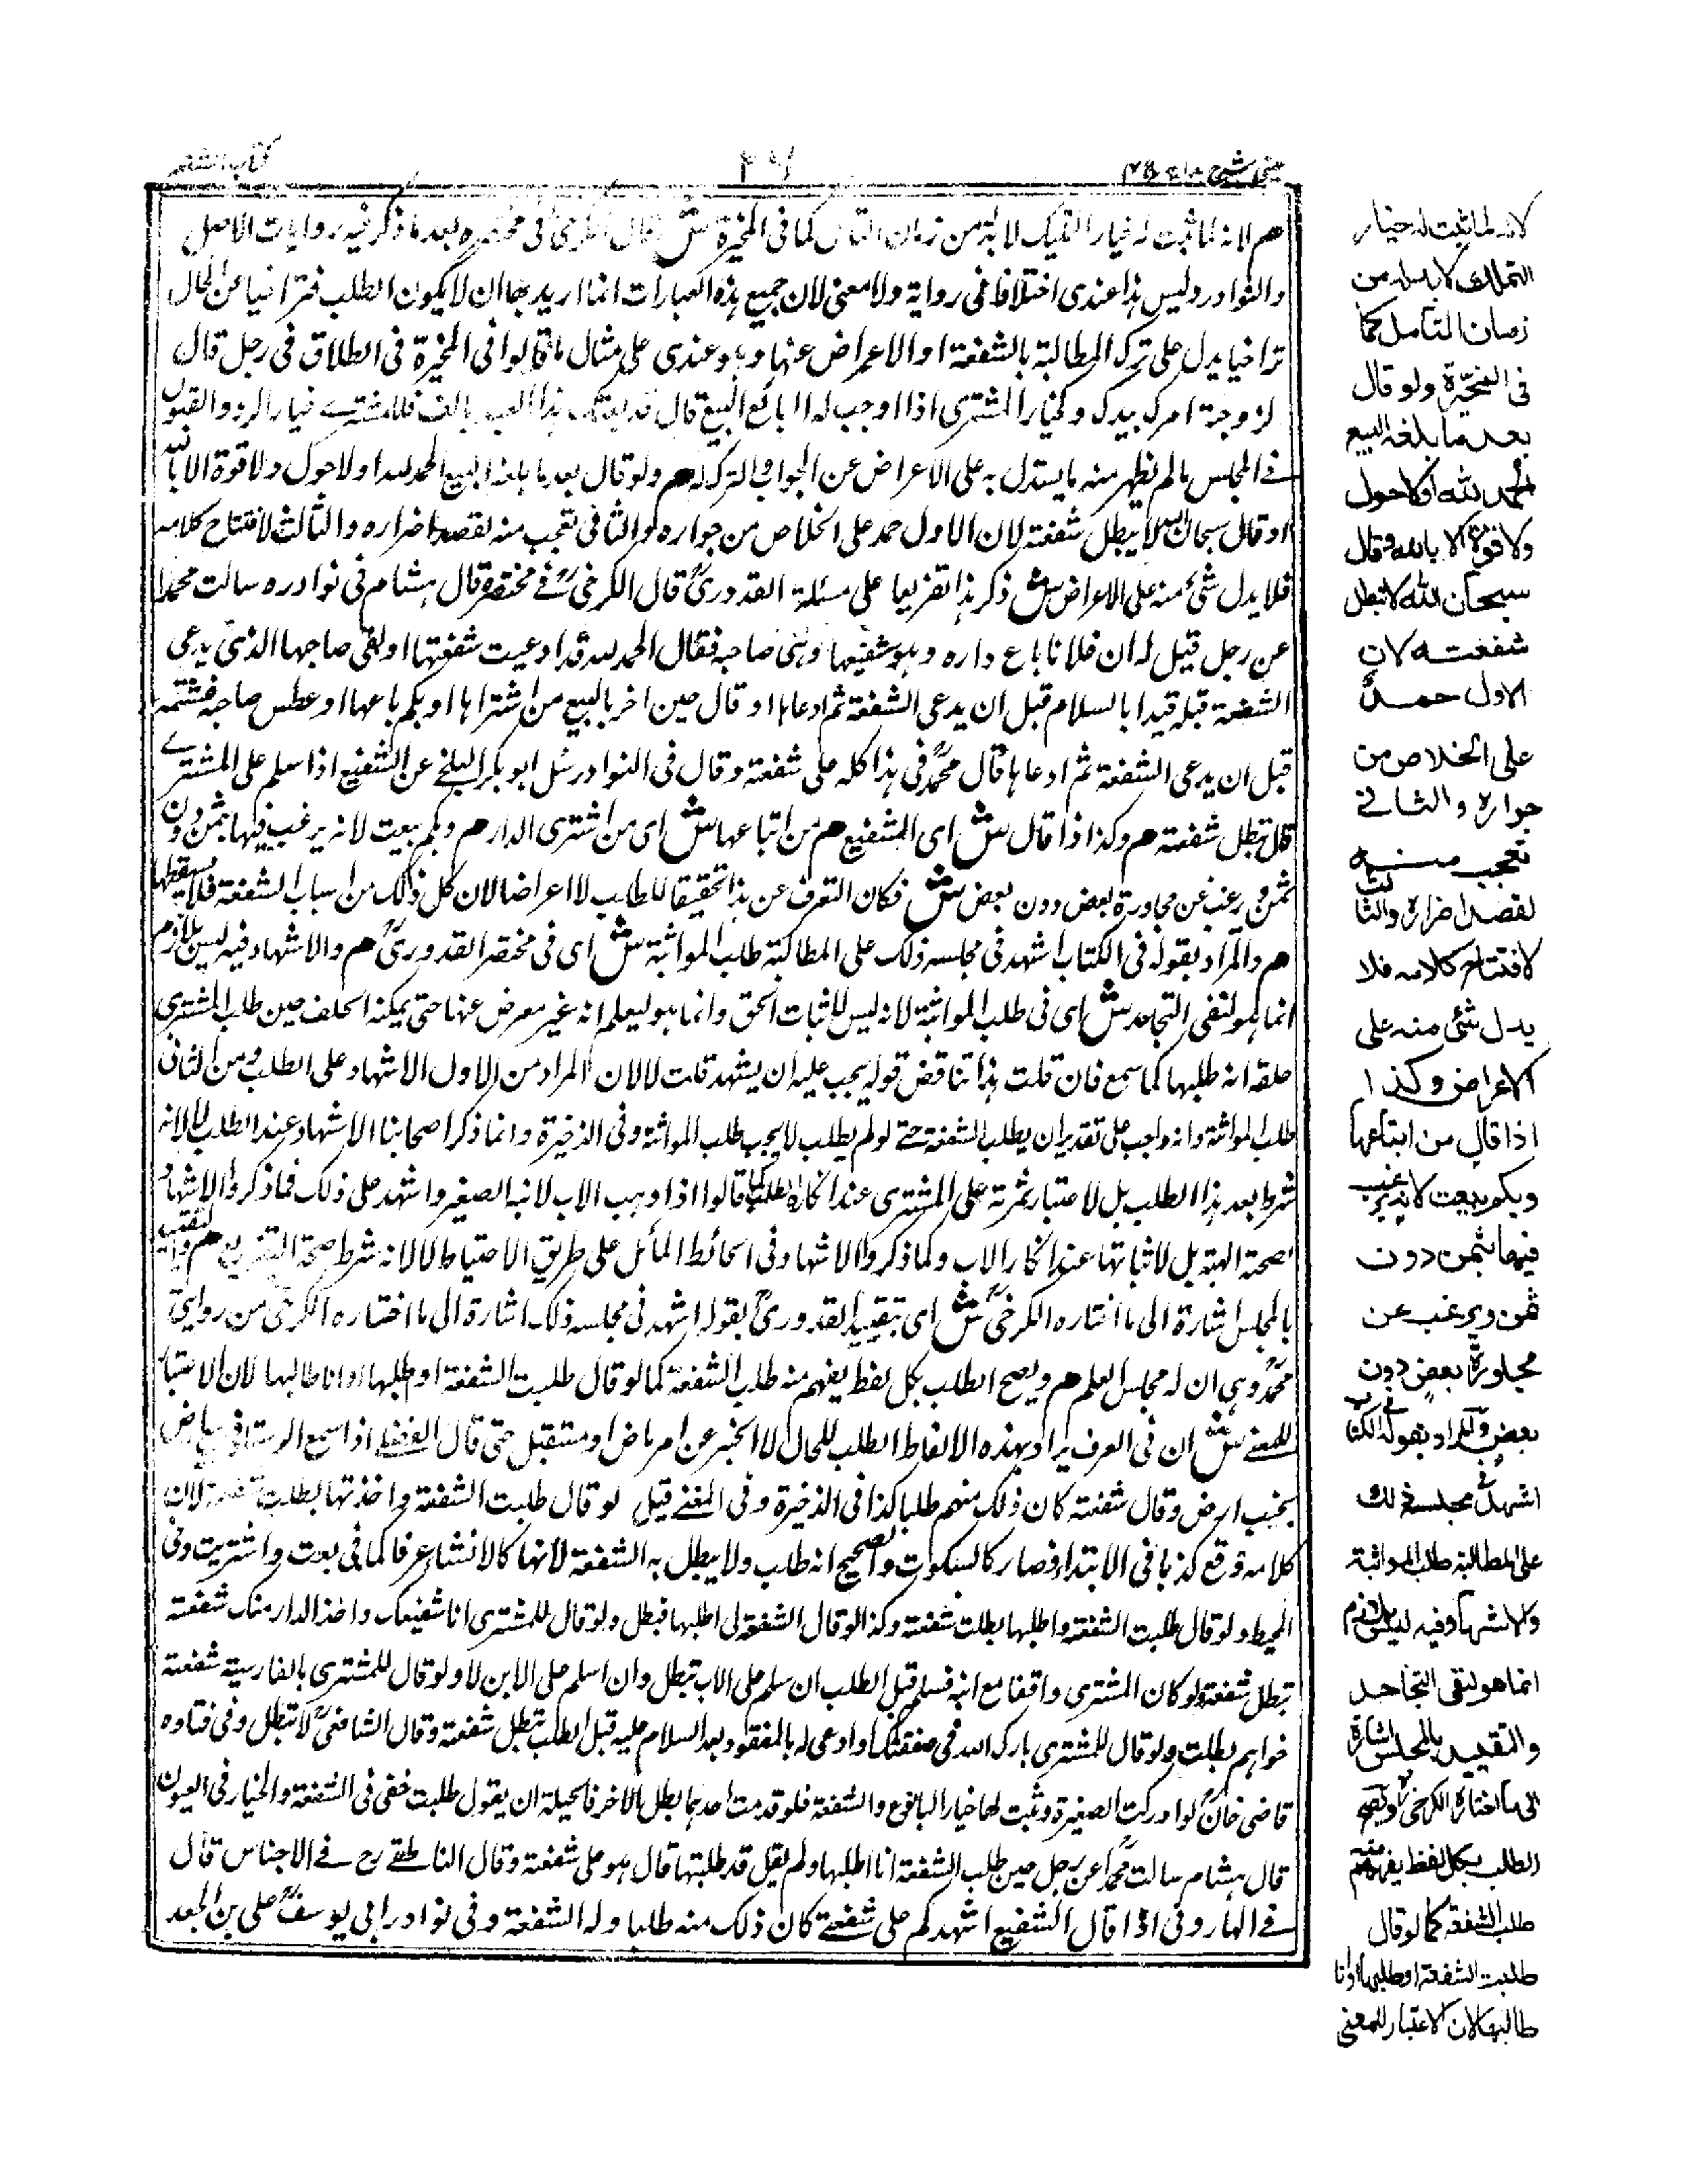 عینی شرح ہدایہ
كتاب الشفعة
هم لانه لما ثبت له خيار التملك لابد له من زمان التامل كما فى المخيرة ش قال الكرخى فى مختصره بعد ما ذكر فيه روايات الاصل
والنوادر وليس هذا عندى اختلافا فى رواية ولا معنى لان جميع هذه العبارات انما اريد بها ان لا يكون الطلب متراخيا عن الحال
تراخيا يدل على ترك المطالبة بالشفعة او الاعراض عنها وهو عندى على مثال ما قالوا فى المخيرة فى الطلاق فى رجل قال
لزوجته امرك بيدك وكخيار المشترى اذا اوجب له البائع البيع قال قد بعتك هذا العبد بالف فللمشترے خيار الرد والقبول
فے المجلس ما لم يظهر منه ما يستدل به على الاعراض عن الجواب والترك له هم ولو قال بعد ما بلغه البيع الحمد لله او لا حول ولا قوة الا بالله
او قال سبحان الله لا يبطل شفعته لان الاول حمد على الخلاص من جواره والثانى تعجب منه لقصد اضراره والثالث لافتتاح كلامه
فلا يدل شئ منه على الاعراض ش ذكر هذا تفريعا على مسئلة القدورى قال الكرخى فے مختصره قال هشام فى نوادره سالت محمدا
عن رجل قيل له ان فلانا باع داره وهو شفيعها وهى صاحبه فقال الحمد لله قد ادعيت شفعتها او لقى صاحبها الذى يدعى
الشفعة قبله فبدا بالسلام قبل ان يدعى الشفعة ثم ادعاها او قال حين اخبر بالبيع من اشتراها او بكم باعها او عطس صاحبه فشمته
قبل ان يدعى الشفعة ثم ادعاها قال محمد فى هذا كله على شفعته وقال فى النوادر سئل ابو بكر البلخے عن الشفيع اذا سلم على المشترے
قال تبطل شفعته هم وكذا اذا قال ش اى الشفيع هم من ابتاعها ش اى من اشترى الدار هم وبكم بيعت لانه يرغب فيها بثمن دون
ثمن ويرغب عن مجاورة بعض دون بعض ش فكان التعرف عن هذا تحقيقا للطلب لا اعراضا لان كل ذلك من اسباب الشفعة فلا يسقطها
هم والمراد بقوله فى الكتاب اشهد فى مجلسه ذلك على المطالبة طلب المواثبة ش اى فى مختصر القدورى هم والاشهاد فيه ليس بلازم
انما هو لنفى التجاحد ش اى فى طلب المواثبة لانه ليس لاثبات الحق وانما هو ليعلم انه غير معرض عنها حتى يمكنه الحلف حين طلب المشترى
حلفه انه طلبها كما سمع فان قلت هذا تناقض قوله يجب عليه ان يشهد قلت لا لان المراد من الاول الاشهاد على الطلب ومن الثانى
طلب المواثبة وانه واجب على تقدير ان يطلب الشفعة حتے لو لم يطلب لا يجب طلب المواثبة وفى الذخيرة وانما ذكر اصحابنا الاشهاد عند الطلب لا لانه
شرط بعد هذا الطلب بل لاعتبار ثمرته على المشترى عند انكاره الطلب كما قالوا اذا وهب الاب لابنه الصغير واشهد على ذلك فما ذكروا الاشهاد
لصحة الهبة بل لاثباتها عند انكار الاب وكما ذكروا الاشهاد فى الحائط المائل على طريق الاحتياط لا لانه شرط صحة التفريع هم والتقييد
بالمجلس اشارة الى ما اختاره الكرخى ش اى تقييد القدورى بقوله اشهد فى مجلسه ذلك اشارة الى ما اختاره الكرخى من روايتى
محمد وهى ان له مجلس العلم هم ويصح الطلب بكل لفظ يفهم منه طلب الشفعة كما لو قال طلبت الشفعة او طلبها او انا طالبها لان الاعتبار
للمعنے ش ان فى العرف يراد بهذه الالفاظ الطلب للحال لا الخبر عن امر ماض او مستقبل حتى قال الفضلے اذا سمع الرستاقى بيع ارض
بجنب ارض وقال شفعته كان ذلك منهم طلبا كذا فى الذخيرة وفى المغنے قيل لو قال طلبت الشفعة واخذتها بطلت شفعته لان
كلامه وقع كذبا فى الابتداء فصار كالسكوت والصحيح انه طلب ولا يبطل به الشفعة لانها كالانشاء عرفا كما فى بعت واشتريت وفى
المحيط ولو قال طلبت الشفعة واطلبها بطلت شفعته وكذا لو قال الشفعة لى اطلبها فبطل ولو قال للمشترى انا شفيعك واخذ الدار منك شفعته
تبطل شفعته ولو كان المشترى واقفا مع ابنه فسلم قبل الطلب ان سلم على الاب تبطل وان اسلم على الابن لا ولو قال للمشترى بالفارسية شفعته
خواهم بطلت ولو قال للمشترى بارك الله فى صفقتك او ادعى له بالمفقود بعد السلام عليه قبل الطلب تبطل شفعته وقال الشافعى لا تبطل وفى فتاوه
قاضى خان لو ادركت الصغيرة وثبت لها خيار البلوغ والشفعة فلو قدمت احدهما بطل الاخر فالحيلة ان يقول طلبت حقى فى الشفعة والخيار فى العيون
قال هشام سالت محمدا عن رجل حين طلب الشفعة انا اطلبها ولم يقل قد طلبتها قال هو على شفعته وقال الناطقے رح فے الاجناس قال
فے الهارونى اذا قال الشفيع اشهدكم على شفعتے كان ذلك منه طلبا وله الشفعة وفى نوادر ابى يوسف على بن الجعد
لانه لما ثبت له خيار
التملك لا بد له من
زمان التامل كما
فى المخيّرة ولو قال
بعد ما بلغه البيع
الحمد لله او لا حول
ولا قوة الا بالله او قال
سبحان الله لا تبطل
شفعته لان
الاول حمد
على الخلاص من
جواره والثانى
تعجب منه
لقصد اضراره والثالث
لافتتاح كلامه فلا
يدل شئ منه على
الاعراض وكذا
اذا قال من ابتاعها
وبكم بيعت لانه يرغب
فيها بثمن دون
ثمن ويرغب عن
مجاورة بعض دون
بعض والمراد بقوله فى الكتاب
اشهد فى مجلسه ذلك
على المطالبة طلب المواثبة
والاشهاد فيه ليس بلازم
انما هو لنفى التجاحد
والتقييد بالمجلس اشارة
الى ما اختاره الكرخى ويصح
الطلب بكل لفظ يفهم منه
طلب الشفعة كما لو قال
طلبت الشفعة او طلبها او انا
طالبها لان الاعتبار للمعنى